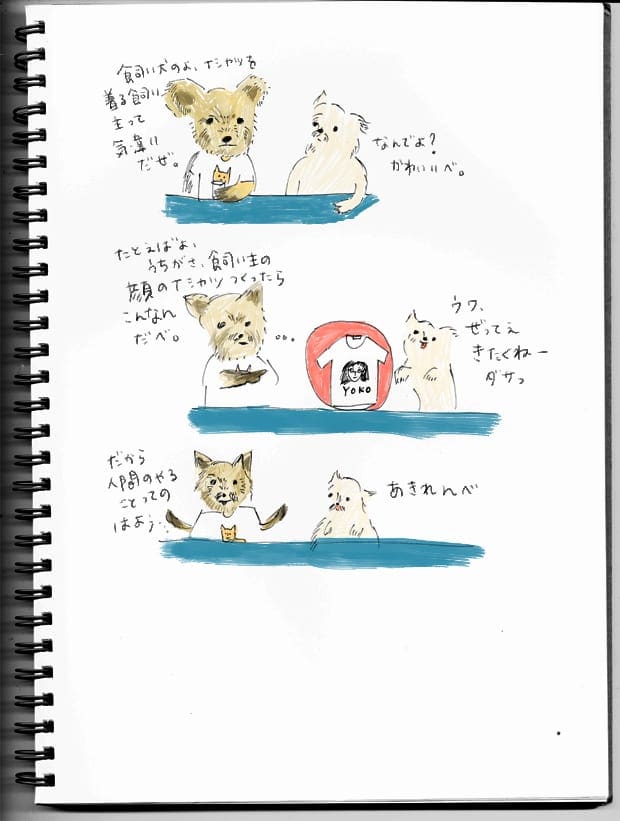 飼い犬のよ、Tシャツを
着る飼い
主って
気薄い
だぜ。
なんでよ?
かわいいべ。
たとえばよ、
うちがさ、飼い主の
顔のTシャツつくったら
こんなん
だべ。
...
YOKO
ウワ、
ぜってぇ
きたくねー
ダサっ
だから
人間のやる
ことっての
はよう...
あきれんべ